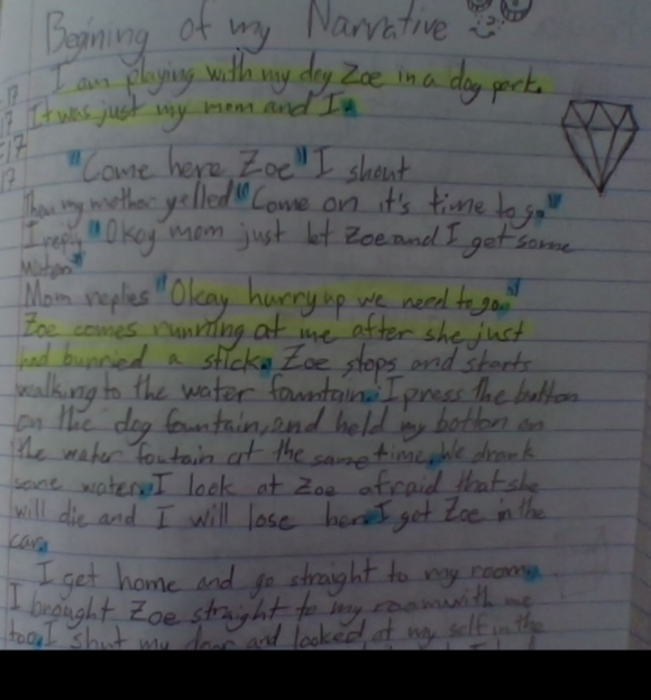 Begining of my Narrative
I am playing with my dog Zoe in a dog park.
It was just my mom and I.
"Come here Zoe" I shout
Then my mother yelled "Come on it's time to go"
I reply "Okay mom just let Zoe and I get some
Mom replies "Okay hurry up we need to go."
Zoe comes running at me after she just
had burried a stick. Zoe stops and starts
walking to the water fountain. I press the button
on the dog fountain, and held my botton on
the water foutain at the same time. We drank
some water. I look at Zoe afraid that she
will die and I will lose her. I get Zoe in the
car.
I get home and go straight to my room.
I brought Zoe straight to my room with me
too. I shut my door and looked at my self in the